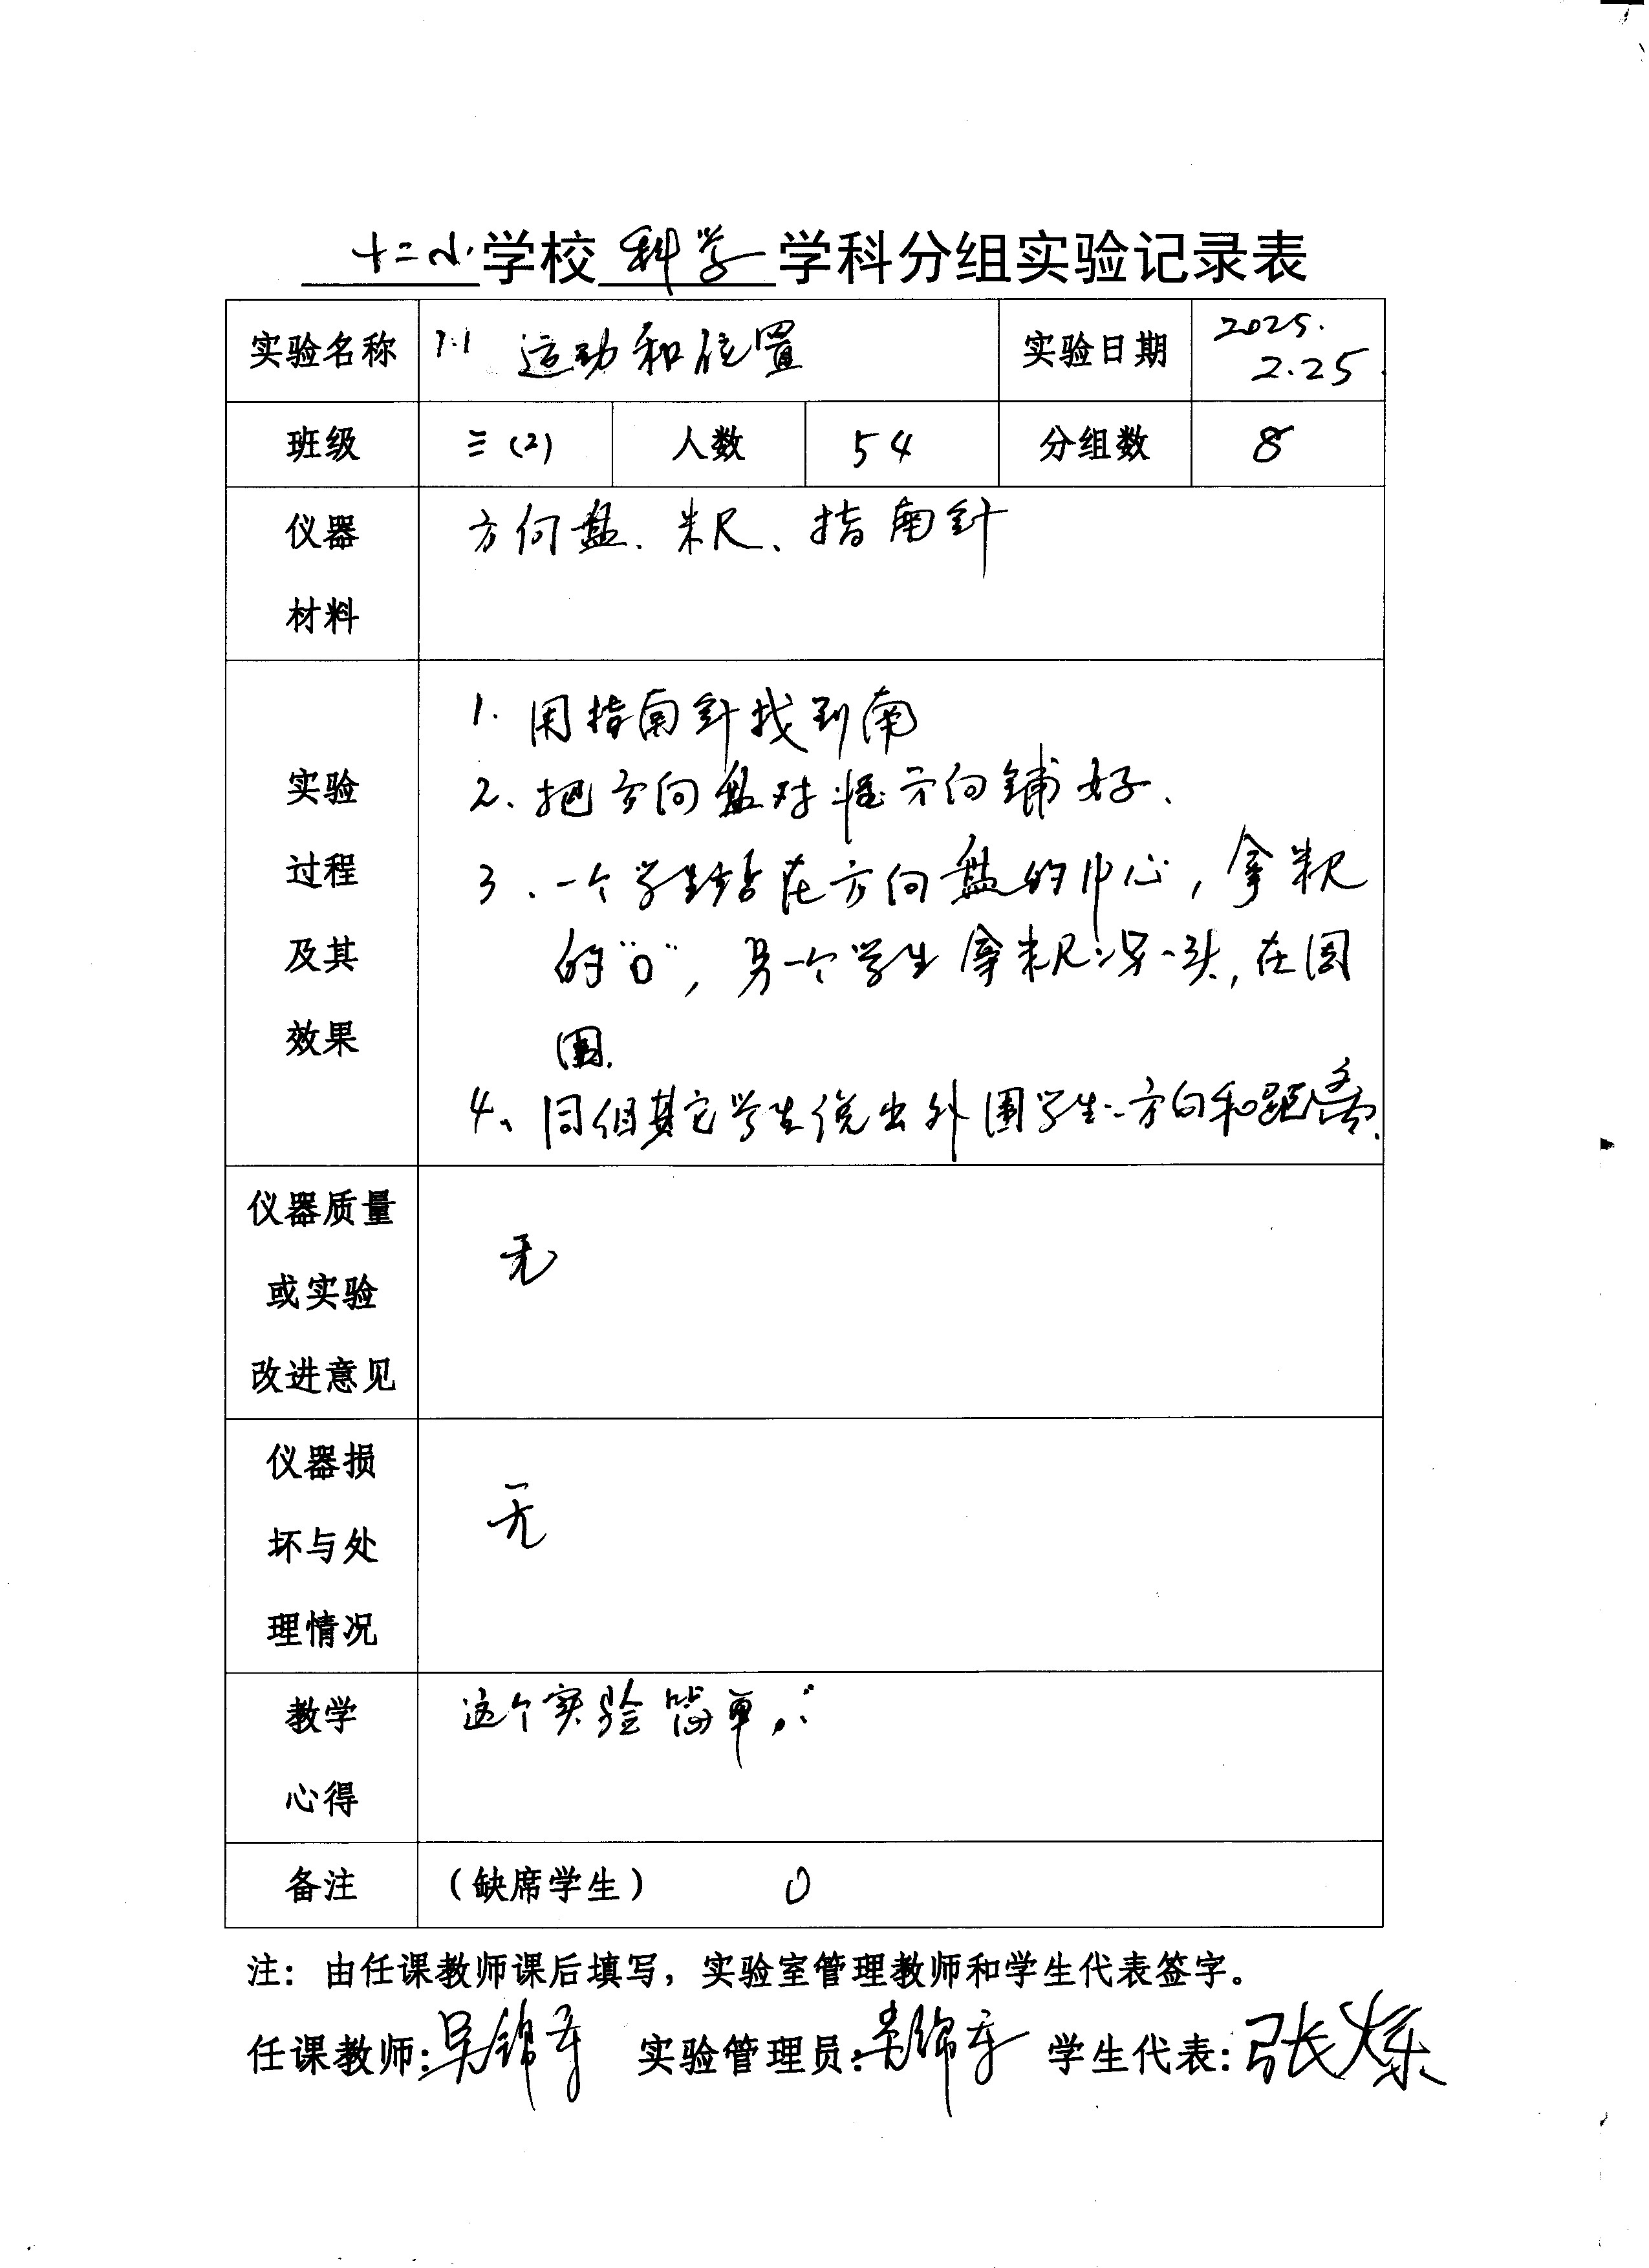 十二小学校科学学科分组实验记录表
实验名称 1.1 运动和位置 实验日期 2025.
2.25.
班级 三(2) 人数 54 分组数 8
仪器 方向盘、米尺、指南针
材料
1. 用指南针找到南
实验 2、把方向盘对准方向铺好.
过程 3、一个学生站在方向盘的中心，拿米尺
及其 的“0”，另一个学生拿米尺另一头，在周
效果 围.
4、同组其它学生说出外围学生方向和距离.
仪器质量
或实验 无
改进意见
仪器损
坏与处 无
理情况
教学 这个实验简单，
心得
备注 （缺席学生） 0
注：由任课教师课后填写，实验室管理教师和学生代表签字。
任课教师: 吴锦 实验管理员: 吴锦 学生代表: 张烁